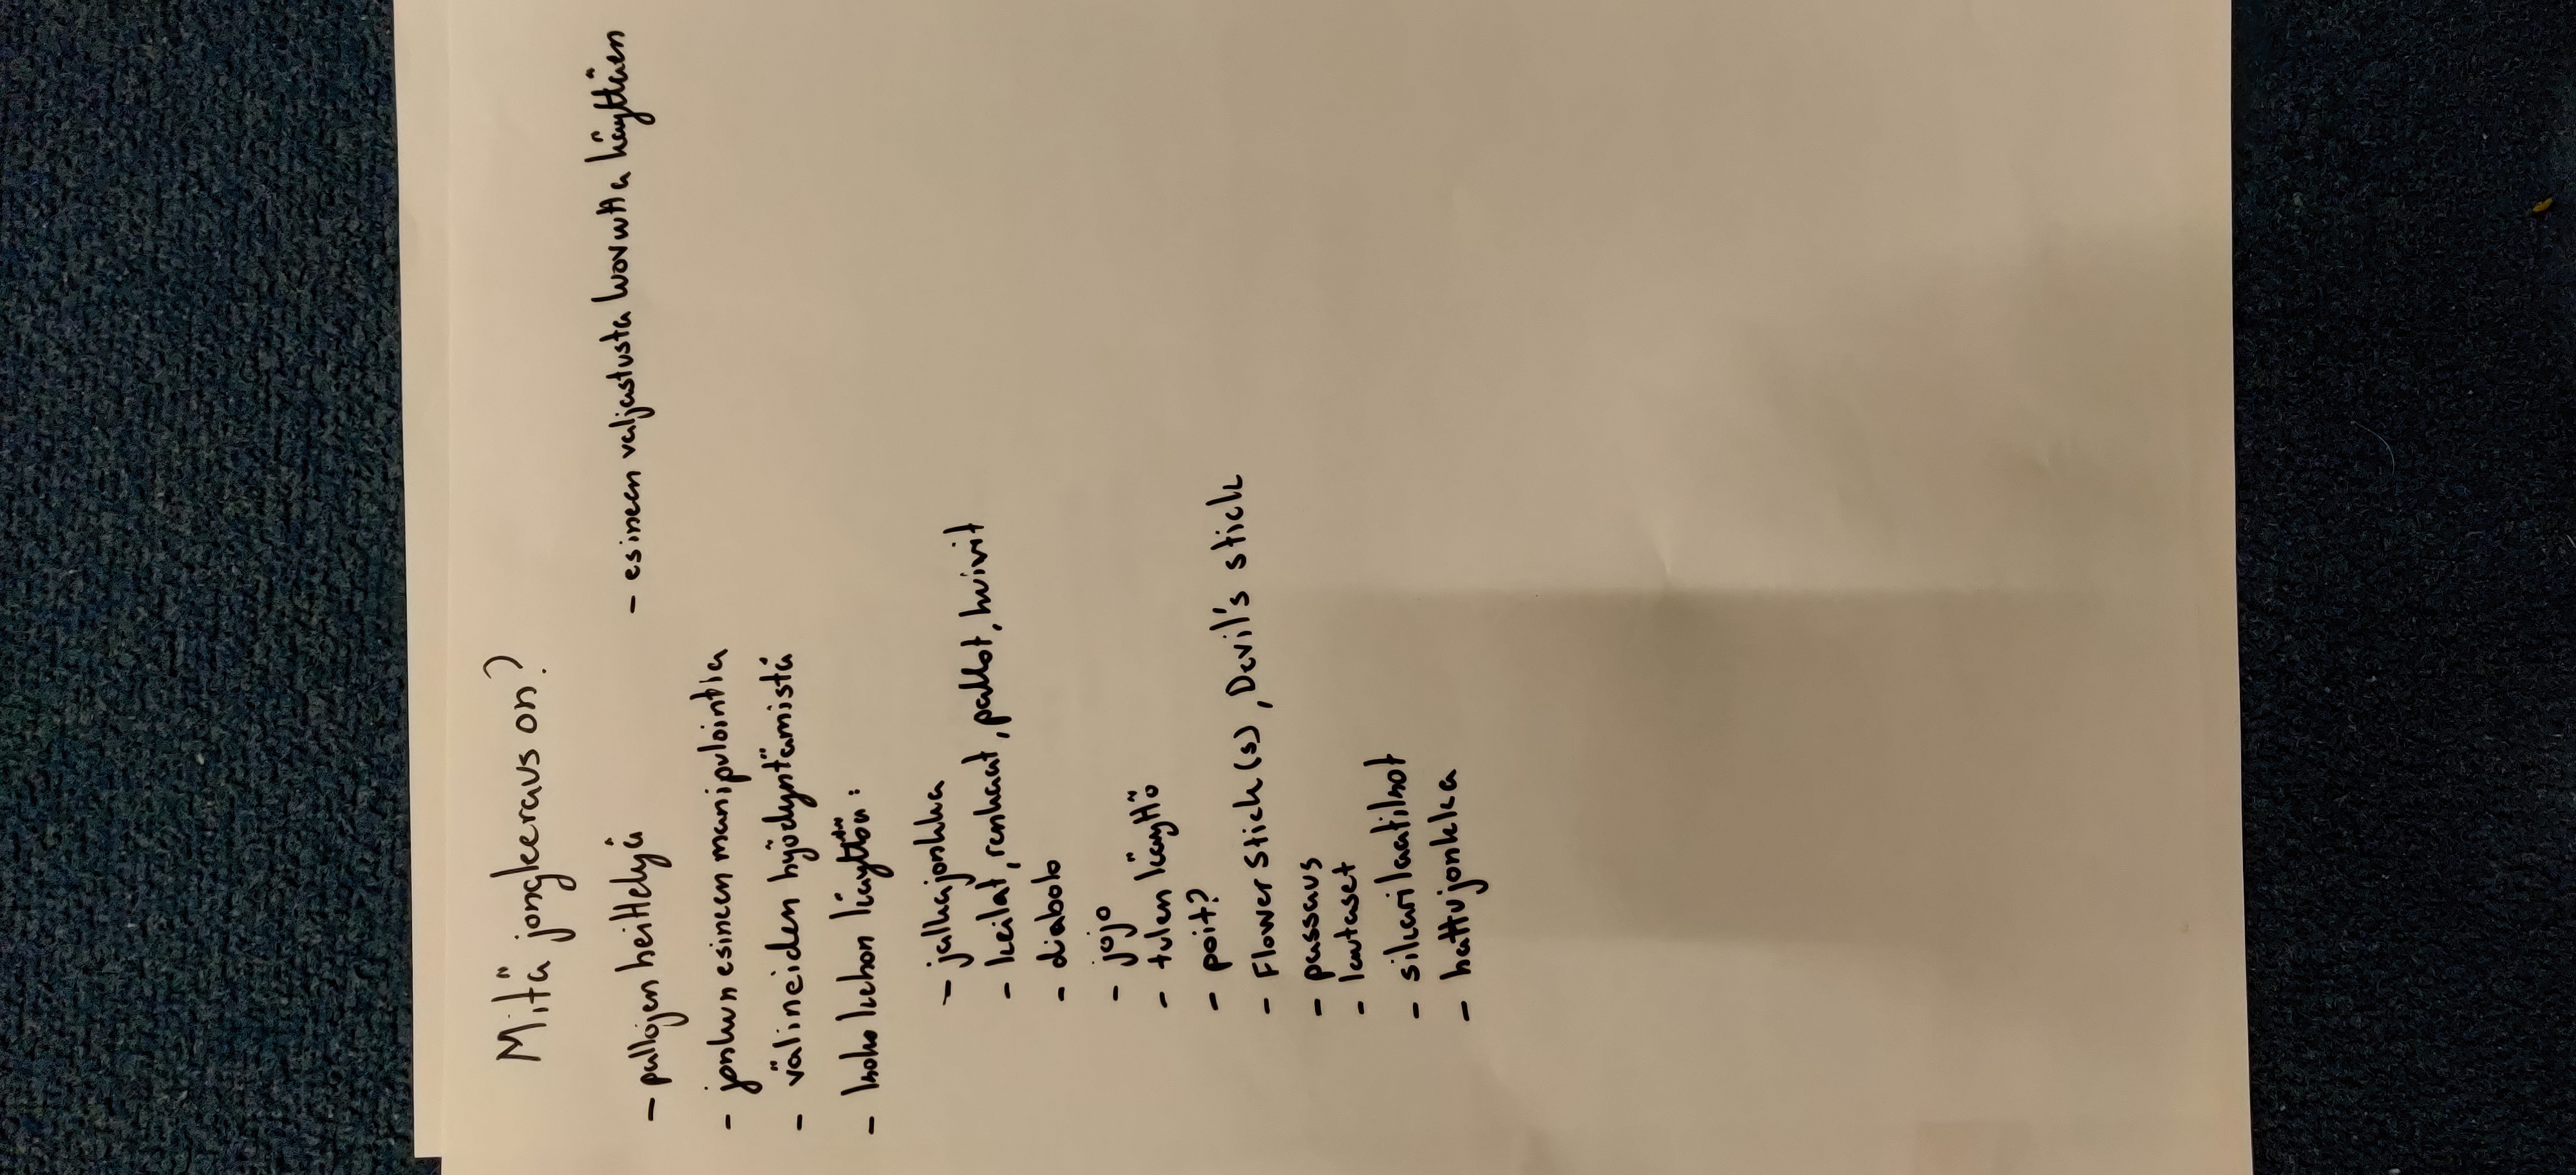 Mitä jongleeraus on?
- pallojen heittelyä
- esineen valjastusta luovuutta käyttäen
- jonkun esineen manipulointia
- välineiden hyödyntämistä
- koko kehon käyttöä:
- jalkajonkka
- keilat, renkaat, pallot, huivit
- diabolo
- jojo
- tulen käyttö
- poit?
- Flowerstick(s), Devil's stick
- passaus
- lautaset
- sikarilaatikot
- hattujonkka